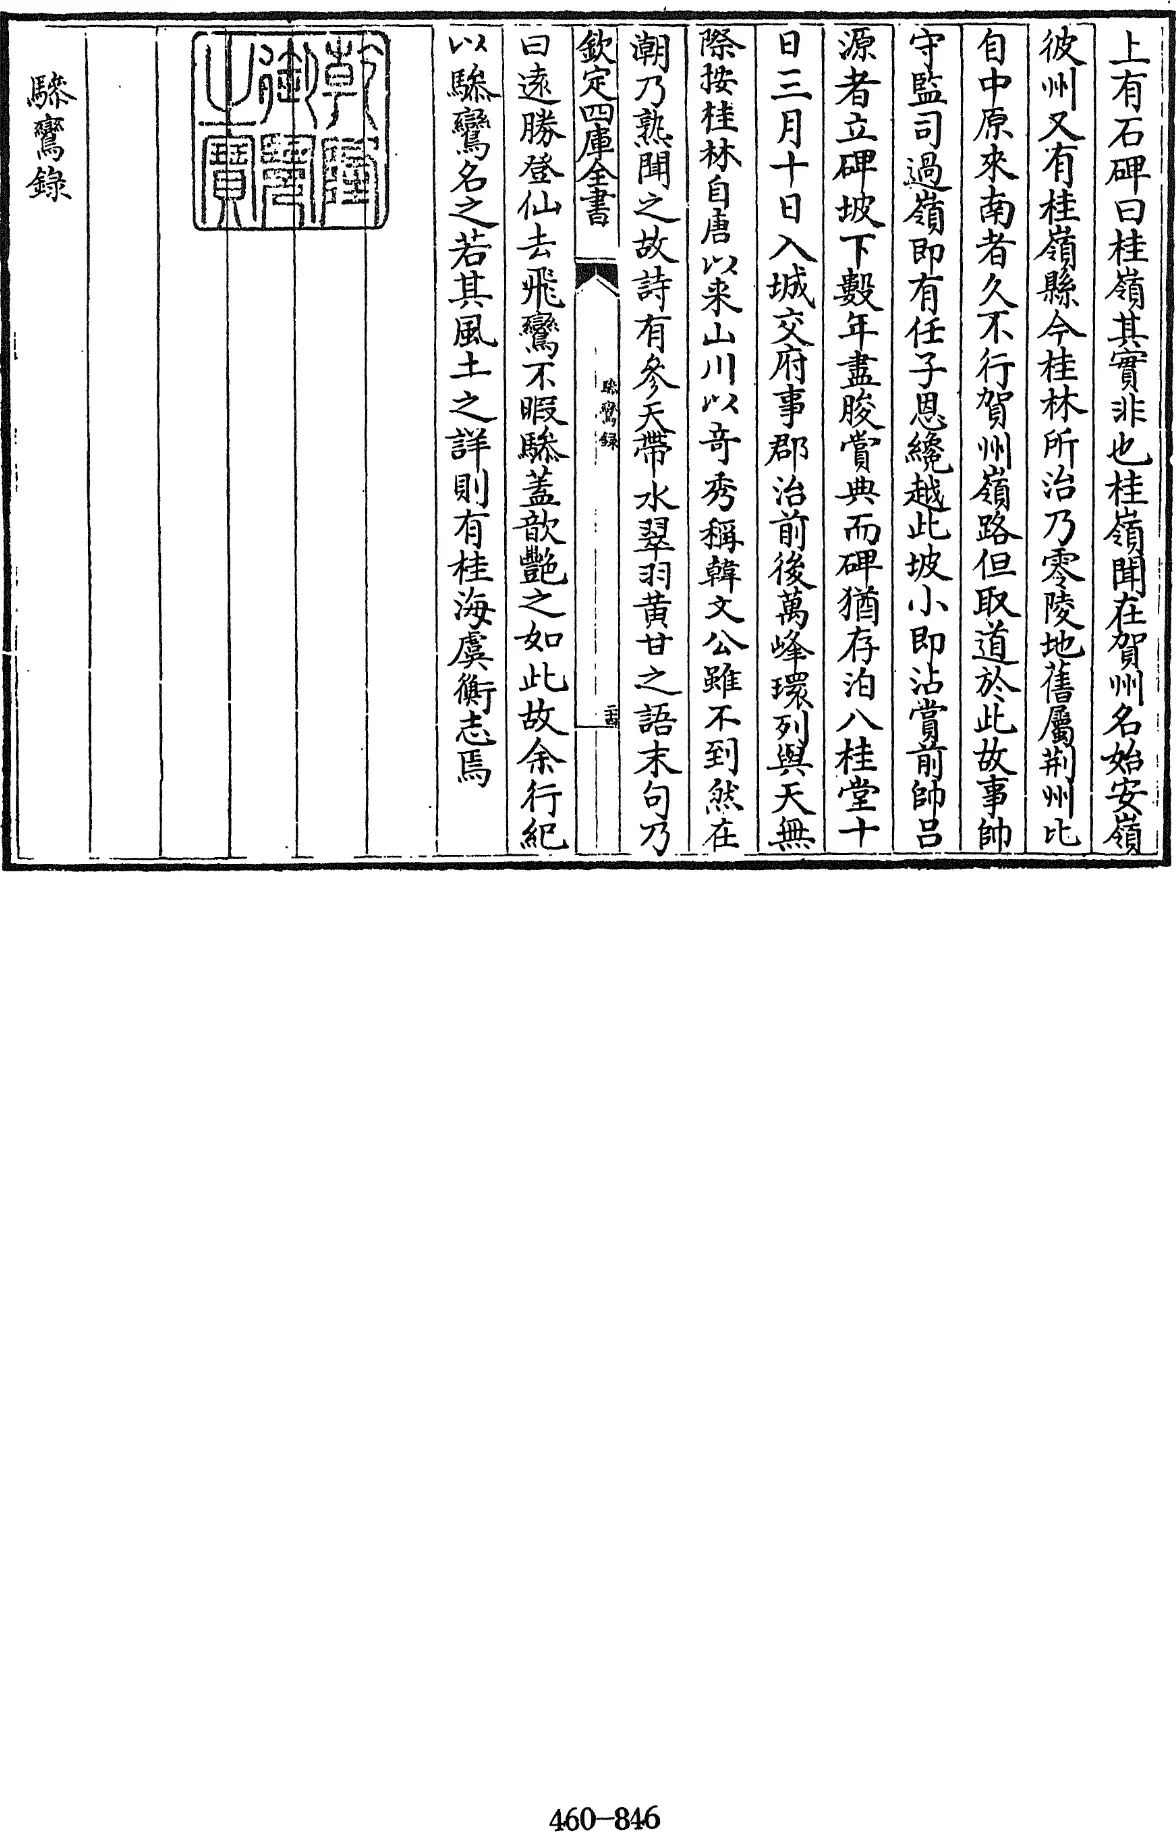 上有石碑曰桂嶺其實非也桂嶺聞在賀州名始安嶺
彼州又有桂嶺縣今桂林所治乃零陵地舊屬荆州比
自中原來南者久不行賀州嶺路但取道於此故事帥
守監司過嶺即有任子恩纔越此坡小即沾賞前帥呂
源者立碑坡下數年盡朘賞典而碑猶存泊八桂堂十
日三月十日入城交府事郡治前後萬峰環列與天無
際按桂林自唐以来山川以竒秀稱韓文公雖不到然在
潮乃熟聞之故詩有參天帶水翠羽黄甘之語末句乃
欽定四庫全書
驂鸞録
二十四
曰遠勝登仙去飛鸞不暇驂蓋歆艷之如此故余行紀
以驂鸞名之若其風土之詳則有桂海虞衡志焉
乾隆御覽之寶
驂鸞錄
460-846